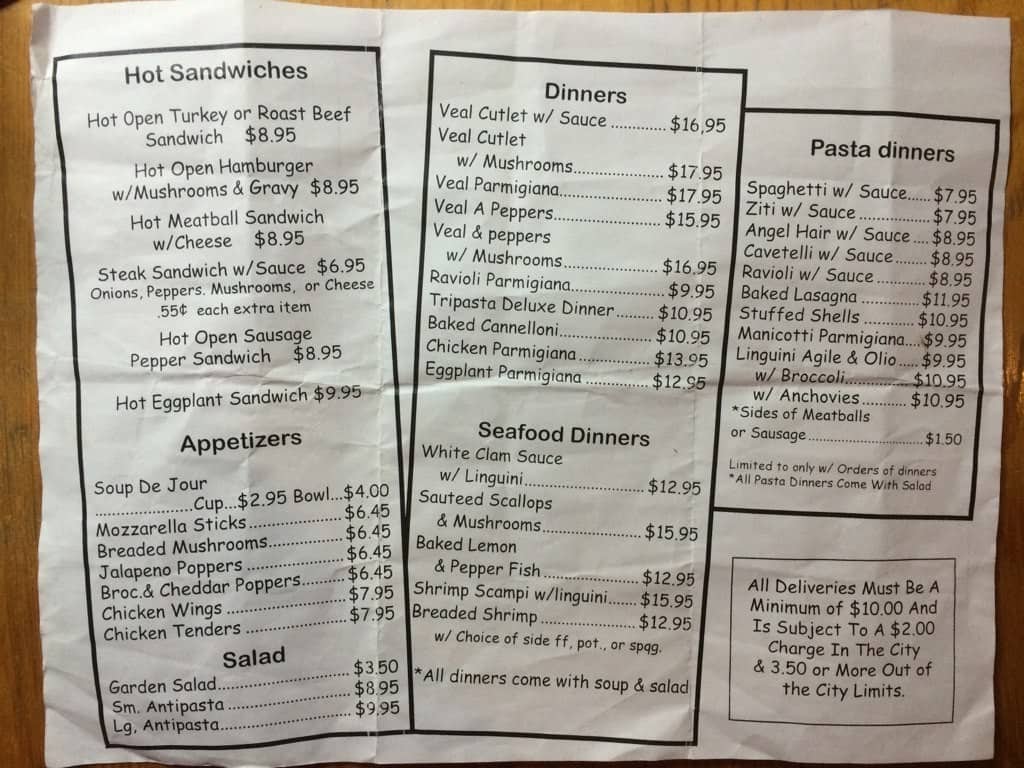 Hot Sandwiches
Hot Open Turkey or Roast Beef
Sandwich $8.95
Hot Open Hamburger
w/Mushrooms & Gravy $8.95
Hot Meatball Sandwich
w/Cheese $8.95
Steak Sandwich w/Sauce $6.95
Onions, Peppers. Mushrooms, or Cheese
.55¢ each extra item
Hot Open Sausage
Pepper Sandwich $8.95
Hot Eggplant Sandwich $9.95
Appetizers
Soup De Jour
......................Cup...$2.95 Bowl...$4.00
Mozzarella Sticks..................$6.45
Breaded Mushrooms...............$6.45
Jalapeno Poppers ..................$6.45
Broc.& Cheddar Poppers........$6.45
Chicken Wings ......................$7.95
Chicken Tenders ...................$7.95
Salad
Garden Salad........................$3.50
Sm. Antipasta ......................$8.95
Lg, Antipasta.......................$9.95
Dinners
Veal Cutlet w/ Sauce ............ $16,95
Veal Cutlet
w/ Mushrooms.................... $17.95
Veal Parmigiana...................... $17.95
Veal A Peppers....................... $15.95
Veal & peppers
w/ Mushrooms.................... $16.95
Ravioli Parmigiana.................... $9.95
Tripasta Deluxe Dinner........ $10.95
Baked Cannelloni.................... $10.95
Chicken Parmigiana ................ $13.95
Eggplant Parmigiana .............. $12.95
Seafood Dinners
White Clam Sauce
w/ Linguini........................... $12.95
Sauteed Scallops
& Mushrooms..................... $15.95
Baked Lemon
& Pepper Fish ..................... $12.95
Shrimp Scampi w/linguini...... $15.95
Breaded Shrimp ..................... $12.95
w/ Choice of side ff, pot., or spag.
*All dinners come with soup & salad
Pasta dinners
Spaghetti w/ Sauce...... $7.95
Ziti w/ Sauce ................ $7.95
Angel Hair w/ Sauce .... $8.95
Cavetelli w/ Sauce........ $8.95
Ravioli w/ Sauce ........... $8.95
Baked Lasagna ............. $11.95
Stuffed Shells ............ $10.95
Manicotti Parmigiana.... $9.95
Linguini Agile & Olio ..... $9.95
w/ Broccoli............... $10.95
w/ Anchovies ........... $10.95
*Sides of Meatballs
or Sausage.............................. $1.50
Limited to only w/ Orders of dinners
*All Pasta Dinners Come With Salad
All Deliveries Must Be A
Minimum of $10.00 And
Is Subject To A $2.00
Charge In The City
& 3.50 or More Out of
the City Limits.